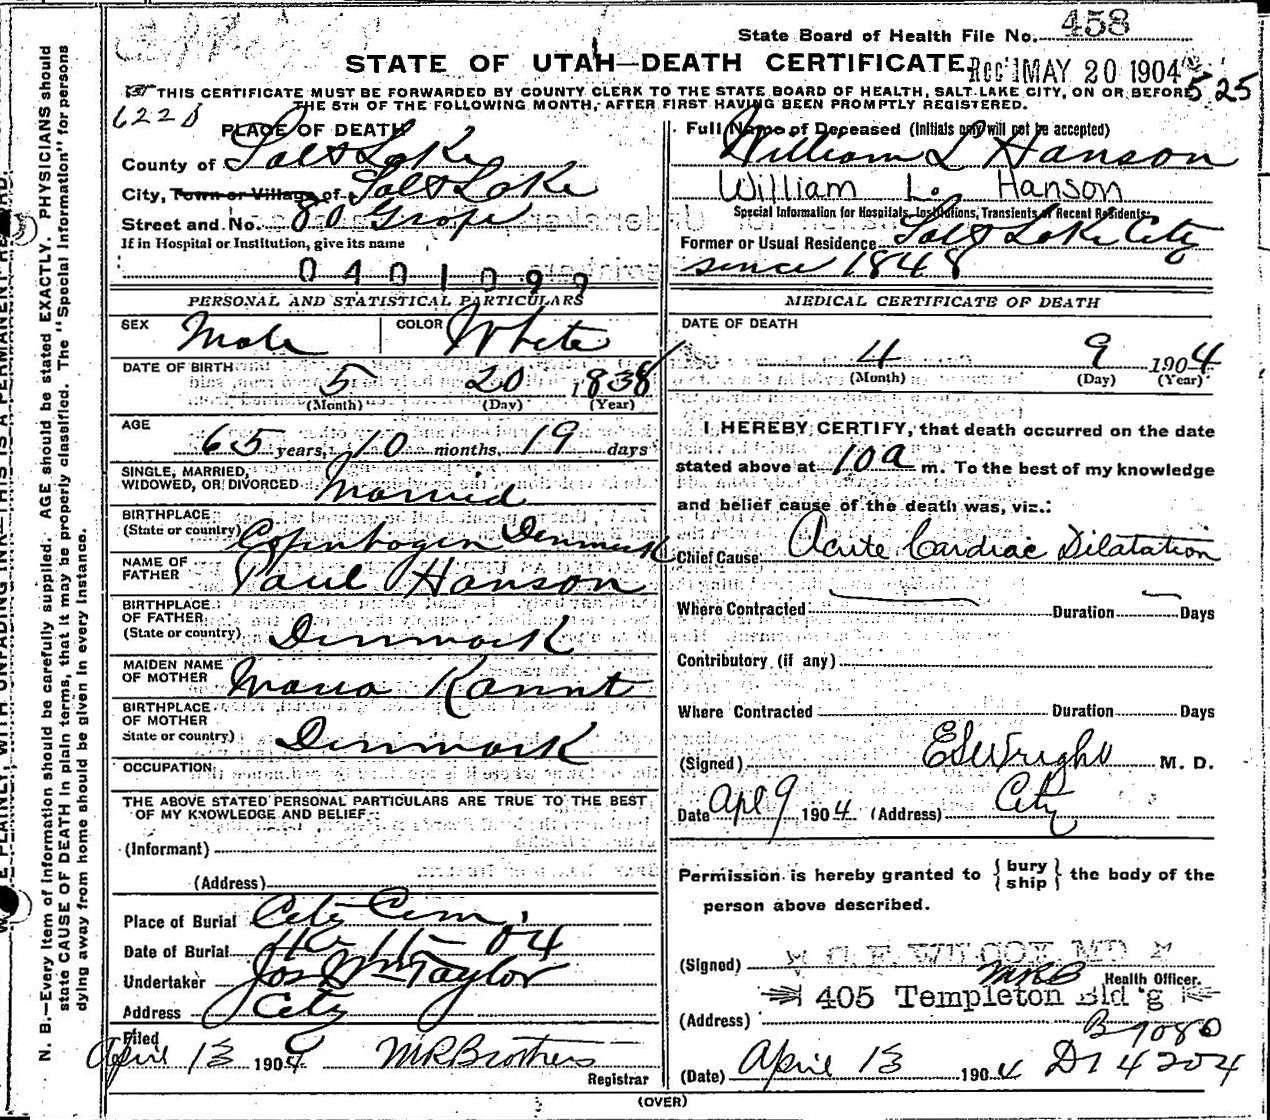 State Board of Health File No. 458
STATE OF UTAH—DEATH CERTIFICATE.
Rec'd MAY 20 1904
THIS CERTIFICATE MUST BE FORWARDED BY COUNTY CLERK TO THE STATE BOARD OF HEALTH, SALT LAKE CITY, ON OR BEFORE
THE 5TH OF THE FOLLOWING MONTH, AFTER FIRST HAVING BEEN PROMPTLY REGISTERED.
525
PLACE OF DEATH
County of Salt Lake
City, Town or Village of Salt Lake
Street and No. 80 Grape
If in Hospital or Institution, give its name
0401099
Full Name of Deceased (Initials only will not be accepted)
William L Hanson
William L. Hanson
Special Information for Hospitals, Institutions, Transients or Recent Residents:
Former or Usual Residence Salt Lake City
since 1848
PERSONAL AND STATISTICAL PARTICULARS
SEX Male COLOR White
DATE OF BIRTH 5 20 1838
(Month) (Day) (Year)
AGE
65 years, 10 months, 19 days
SINGLE, MARRIED,
WIDOWED, OR DIVORCED Married
BIRTHPLACE
(State or country) Copenhagen Denmark
NAME OF
FATHER Paul Hanson
BIRTHPLACE
OF FATHER
(State or country) Denmark
MAIDEN NAME
OF MOTHER Maria Kannt
BIRTHPLACE
OF MOTHER
State or country) Denmark
OCCUPATION
THE ABOVE STATED PERSONAL PARTICULARS ARE TRUE TO THE BEST
OF MY KNOWLEDGE AND BELIEF:
(Informant)
(Address)
Place of Burial City Cem.
Date of Burial 4-11-04
Undertaker Jos Wm Taylor
Address City
Filed
April 13 1904 M R Brothers
Registrar
MEDICAL CERTIFICATE OF DEATH
DATE OF DEATH
4 9 1904
(Month) (Day) (Year)
I HEREBY CERTIFY, that death occurred on the date
stated above at 10 a m. To the best of my knowledge
and belief cause of the death was, viz.:
Chief Cause Acute Cardiac Dilatation
Where Contracted Duration Days
Contributory (if any)
Where Contracted Duration Days
(Signed) E S Wright M. D.
Date Apl 9 1904 (Address) City
Permission is hereby granted to { bury ship } the body of the
person above described.
(Signed) C. E. WILCOX, MD
MRB Health Officer.
405 Templeton Bld'g
(Address)
B 9080
(Date) April 13 1904 D14204
(OVER)
N. B.—Every item of information should be carefully supplied. AGE should be stated EXACTLY. PHYSICIANS should
state CAUSE OF DEATH in plain terms, that it may be properly classified. The "Special Information" for persons
dying away from home should be given in every instance.